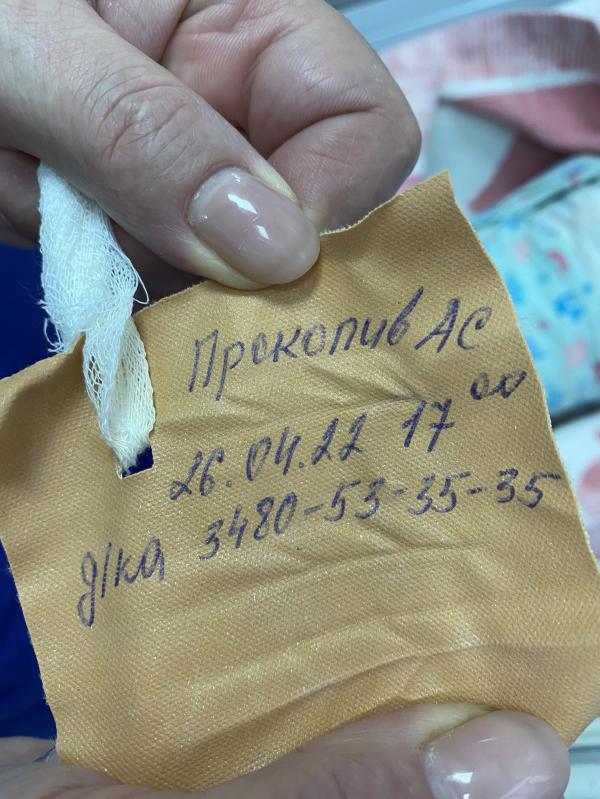 Прокопив АС
26.04.22 17⁰⁰
д/ка 3480-53-35-35